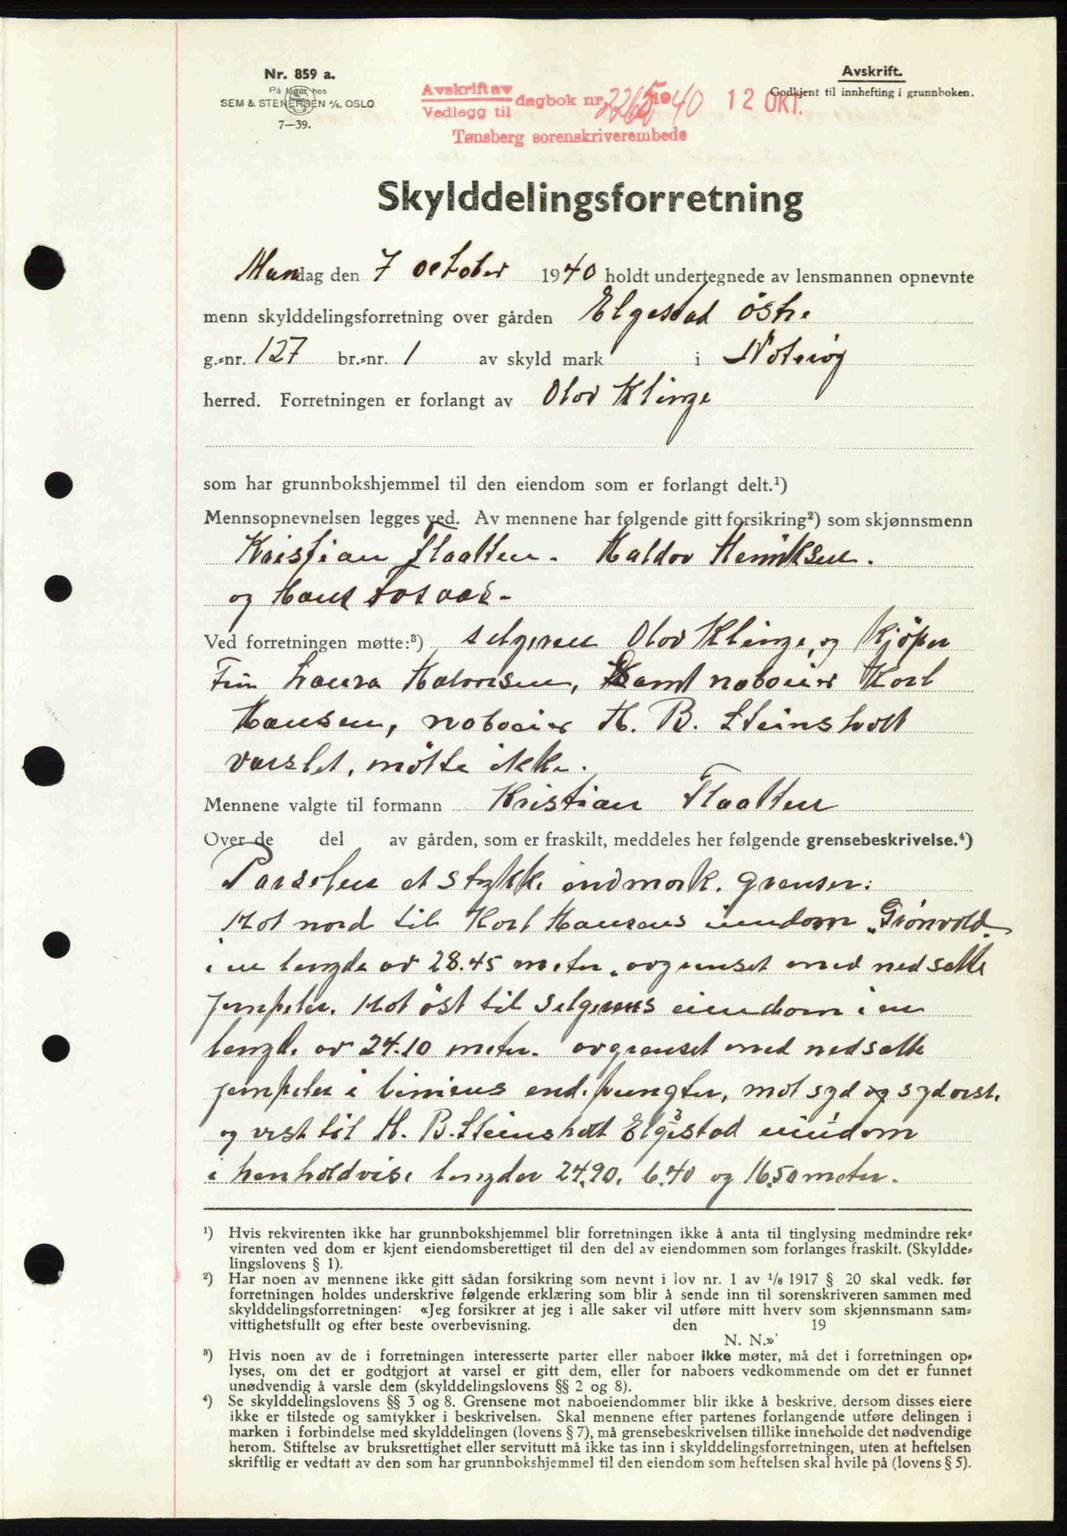 Nr. 859 a.
På lager hos
SEM & STENERSEN A/S, OSLO
7—39.
Avskrift.
Godkjent til innhefting i grunnboken.
Avskrift av
Vedlegg til
dagbok nr. 2265 1940
12 OKT.
Tønsberg sorenskriverembede
Skylddelingsforretning
Mandag den 7 october 1940 holdt undertegnede av lensmannen opnevnte
menn skylddelingsforretning over gården Elgestad östre
g.-nr. 127 br.-nr. 1 av skyld mark i Nøterøy
herred. Forretningen er forlangt av Olov Klinge
som har grunnbokshjemmel til den eiendom som er forlangt delt.¹)
Mennsopnevnelsen legges ved. Av mennene har følgende gitt forsikring²) som skjønnsmenn
Kristian Flaatten. Haldor Henriksen.
og Hans Fosaas.
Ved forretningen møtte:³) selgeren Olov Klinge, og kjöper
Fru Laura Halvorsen, samt naboeier Karl
Hansen, naboeier H. B. Steinsholt
varslet, mötte ikke.
Mennene valgte til formann Kristian Flaatten
Over de del av gården, som er fraskilt, meddeles her følgende grensebeskrivelse.⁴)
Parsellen et stykke indmark. grenser:
Mot nord til Karl Hansens eiendom „Grönvold"
i en lengde av 28.45 meter, avgrenset med nedsatte
jernpeler. Mot öst til selgerens eiendom i en
lengde av 24.10 meter. avgrenset med nedsatte
jernpeler i liniens endepungter, mot syd og sydvest.
og vest til H. B. Steinsholt Elgestad eiendom
i henholdvise lengder 24.90. 6.40 og 16.50 meter.
¹) Hvis rekvirenten ikke har grunnbokshjemmel blir forretningen ikke å anta til tinglysing medmindre rek-
virenten ved dom er kjent eiendomsberettiget til den del av eiendommen som forlanges fraskilt. (Skyldde-
lingslovens § 1).
²) Har noen av mennene ikke gitt sådan forsikring som nevnt i lov nr. 1 av 1/6 1917 § 20 skal vedk. før
forretningen holdes underskrive følgende erklæring som blir å sende inn til sorenskriveren sammen med
skylddelingsforretningen: «Jeg forsikrer at jeg i alle saker vil utføre mitt hverv som skjønnsmann sam-
vittighetsfullt og efter beste overbevisning. den 19
N. N.»
³) Hvis noen av de i forretningen interesserte parter eller naboer ikke møter, må det i forretningen op-
lyses, om det er godtgjort at varsel er gitt dem, eller for naboers vedkommende om det er funnet
unødvendig å varsle dem (skylddelingslovens §§ 2 og 8).
⁴) Se skylddelingslovens §§ 3 og 8. Grensene mot naboeiendommer blir ikke å beskrive, dersom disses eiere
ikke er tilstede og samtykker i beskrivelsen. Skal mennene efter partenes forlangende utføre delingen i
marken i forbindelse med skylddelingen (lovens § 7), må grensebeskrivelsen tillike inneholde det nødvendige
herom. Stiftelse av bruksrettighet eller servitutt må ikke tas inn i skylddelingsforretningen, uten at heftelsen
skriftlig er vedtatt av den som har grunnbokshjemmel til den eiendom som heftelsen skal hvile på (lovens § 5).